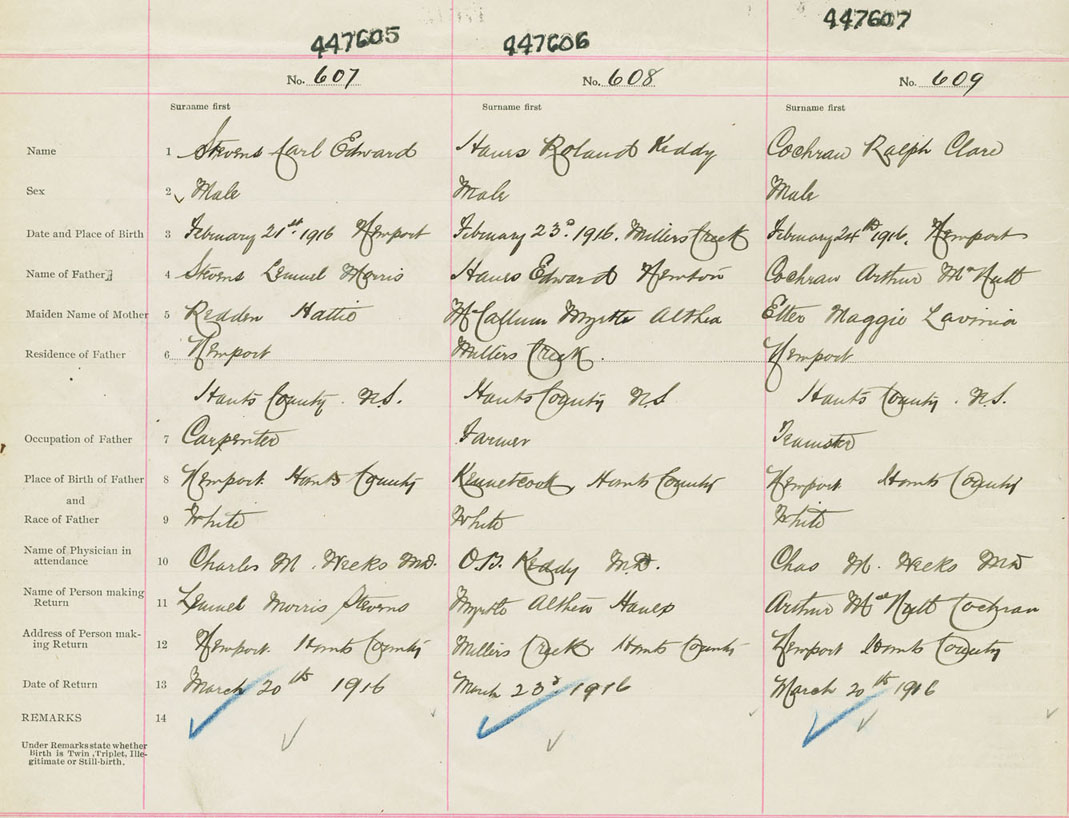 447605 447606 447607
No. 607 No. 608 No. 609
Surname first Surname first Surname first
Name 1 Stevens Carl Edward Roland Keddy Cochran Ralph Clare
Sex 2 Male Male Male
Date and Place of Birth 3 February 21st 1916 Newport February 23d. 1916. Millers Creek February 24th 1916. Newport
Name of Father 4 Stevens Lemuel Morris Edward Newton Cochran Arthur McNutt
Maiden Name of Mother 5 Redden Hattie McCallum Myrtle Althea Etter Maggie Lavinia
Residence of Father 6 Newport Millers Creek. Newport
Hants County. N.S. Hants County N.S. Hants County. N.S.
Occupation of Father 7 Carpenter Farmer Teamster
Place of Birth of Father 8 Newport Hants County Kennetcook, Hants County Newport Hants County
and
Race of Father 9 White White White
Name of Physician in
attendance 10 Charles M. Weeks MD. O.B. Keddy M.D. Chas M. Weeks MD
Name of Person making
Return 11 Lemuel Morris Stevens Myrtle Althea Arthur McNutt Cochran
Address of Person mak-
ing Return 12 Newport. Hants County Millers Creek, Hants County Newport Hants County
Date of Return 13 March 20th 1916 March 23d 1916 March 20th 1916
REMARKS 14
Under Remarks state whether
Birth is Twin, Triplet, Ille-
gitimate or Still-birth.